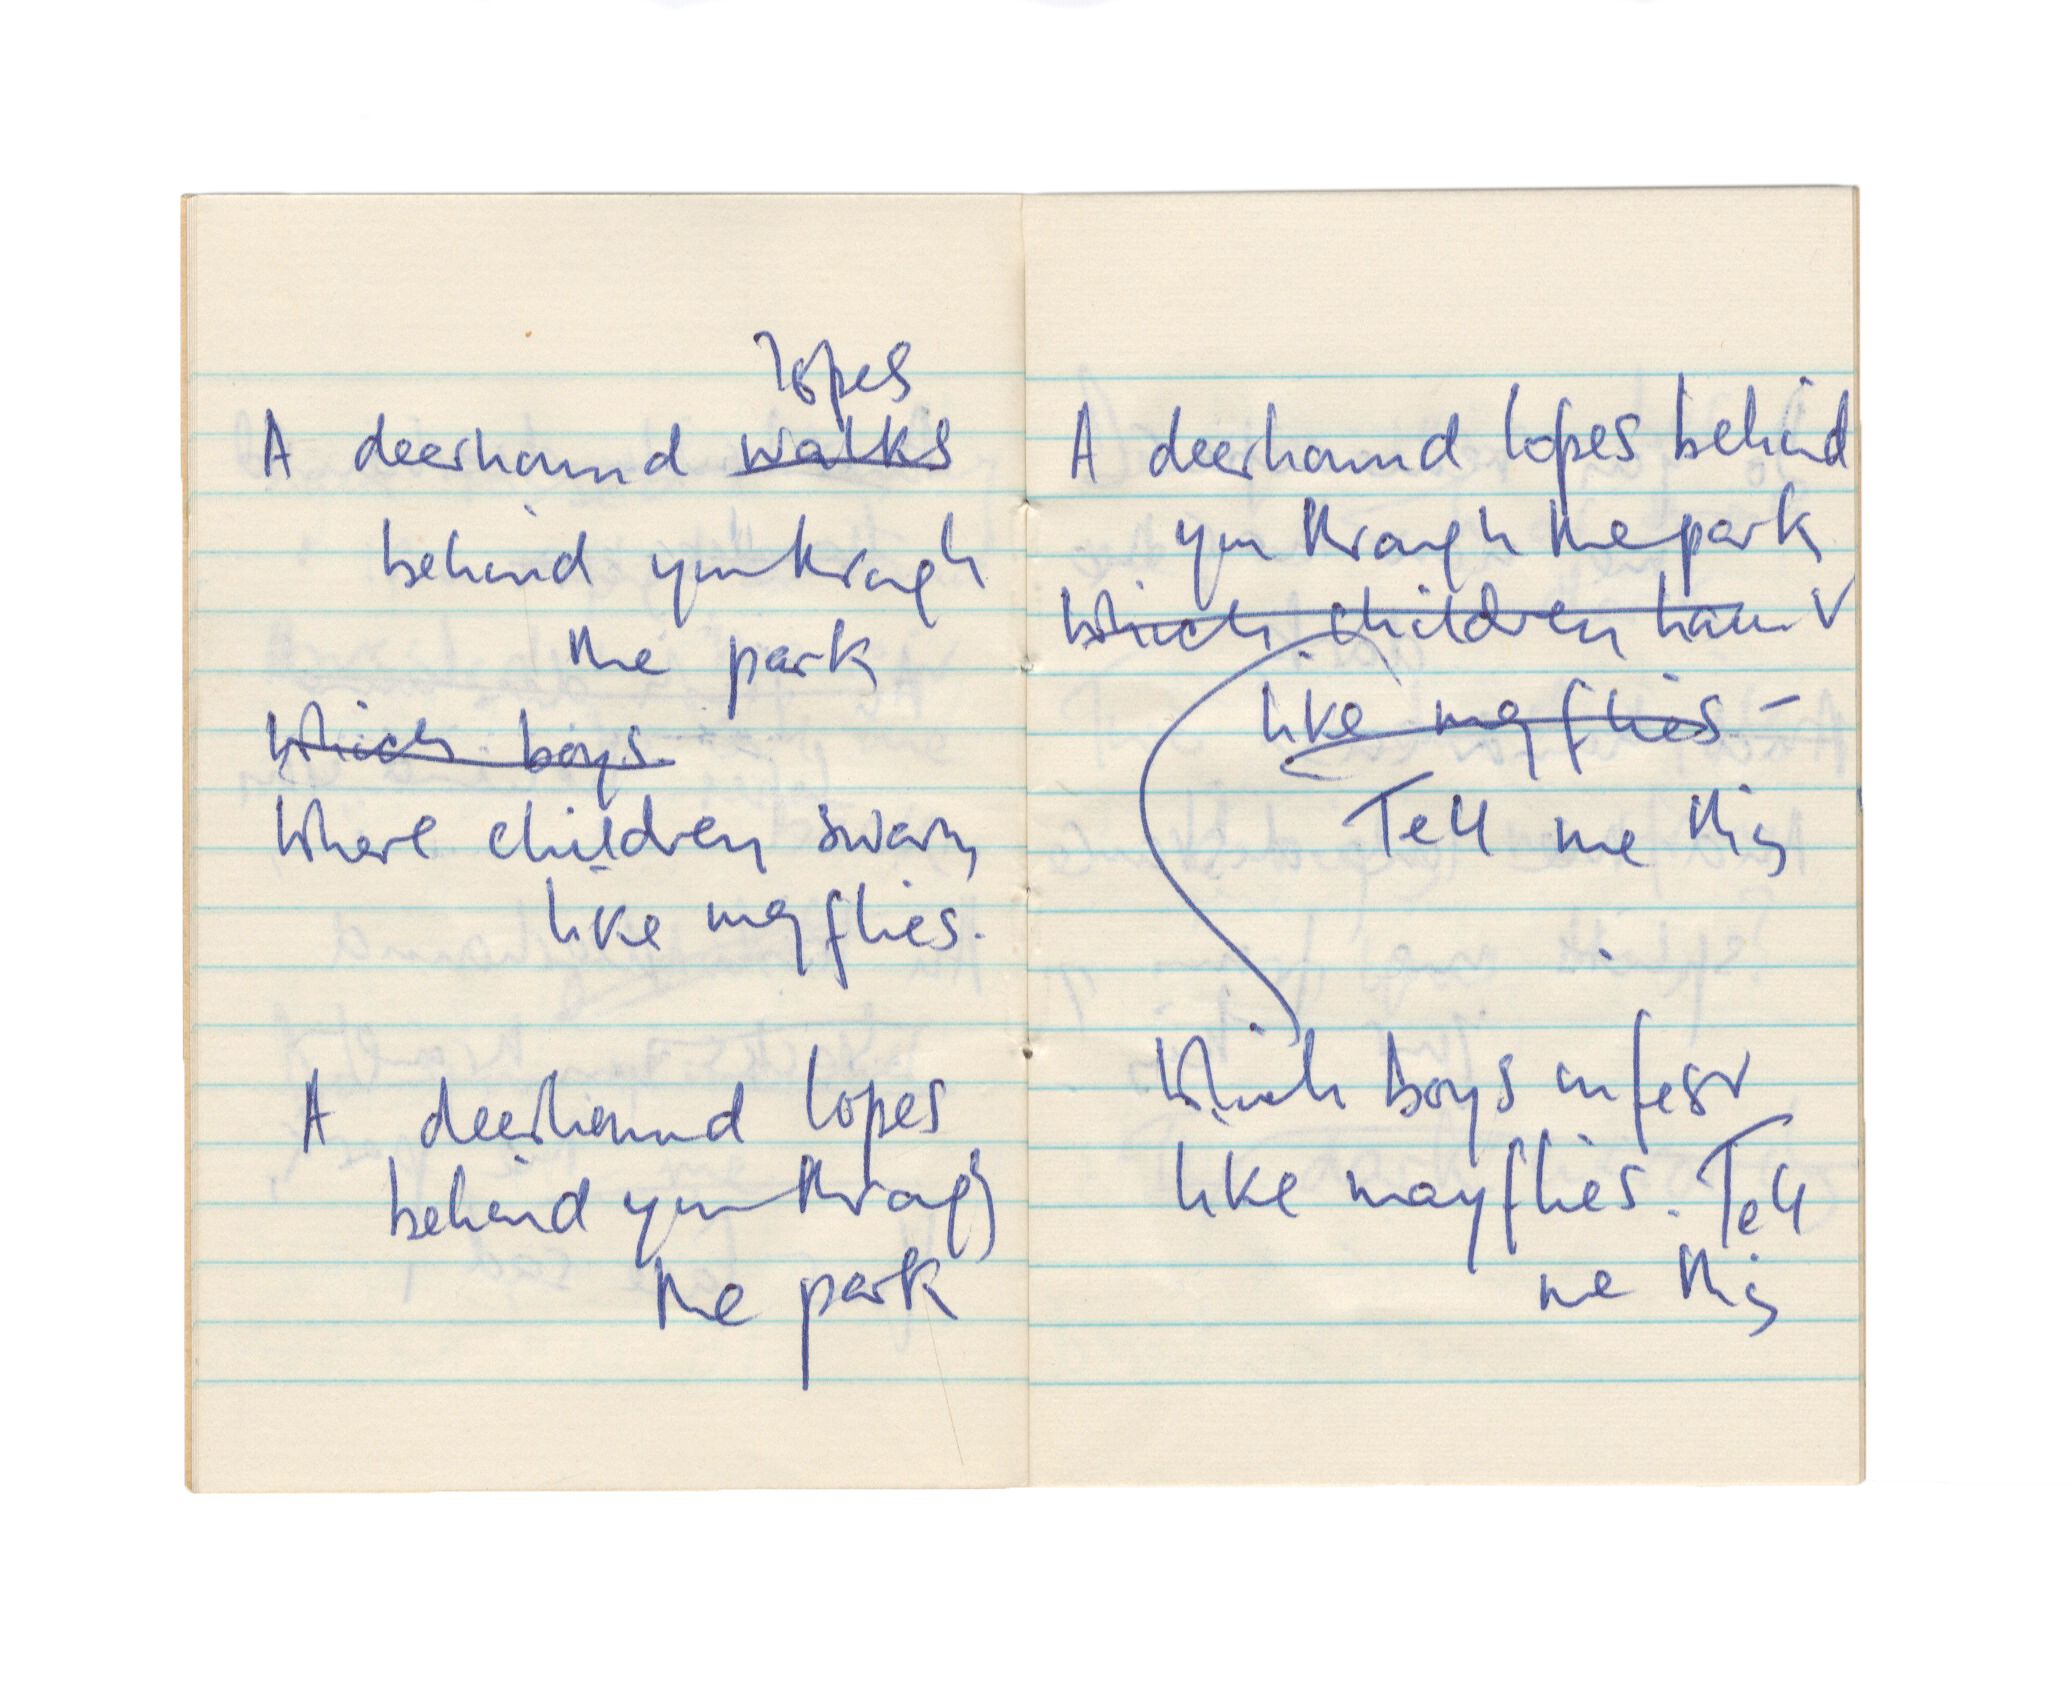 lopes
A deerhound walks
behind you through
the park
Which boys
Where children swarm
like mayflies.
A deerhound lopes
behind you through
the park
A deerhound lopes behind
you through the park
Which children haunt
like mayflies –
Tell me this
Which boys infest
like mayflies. Tell
me this